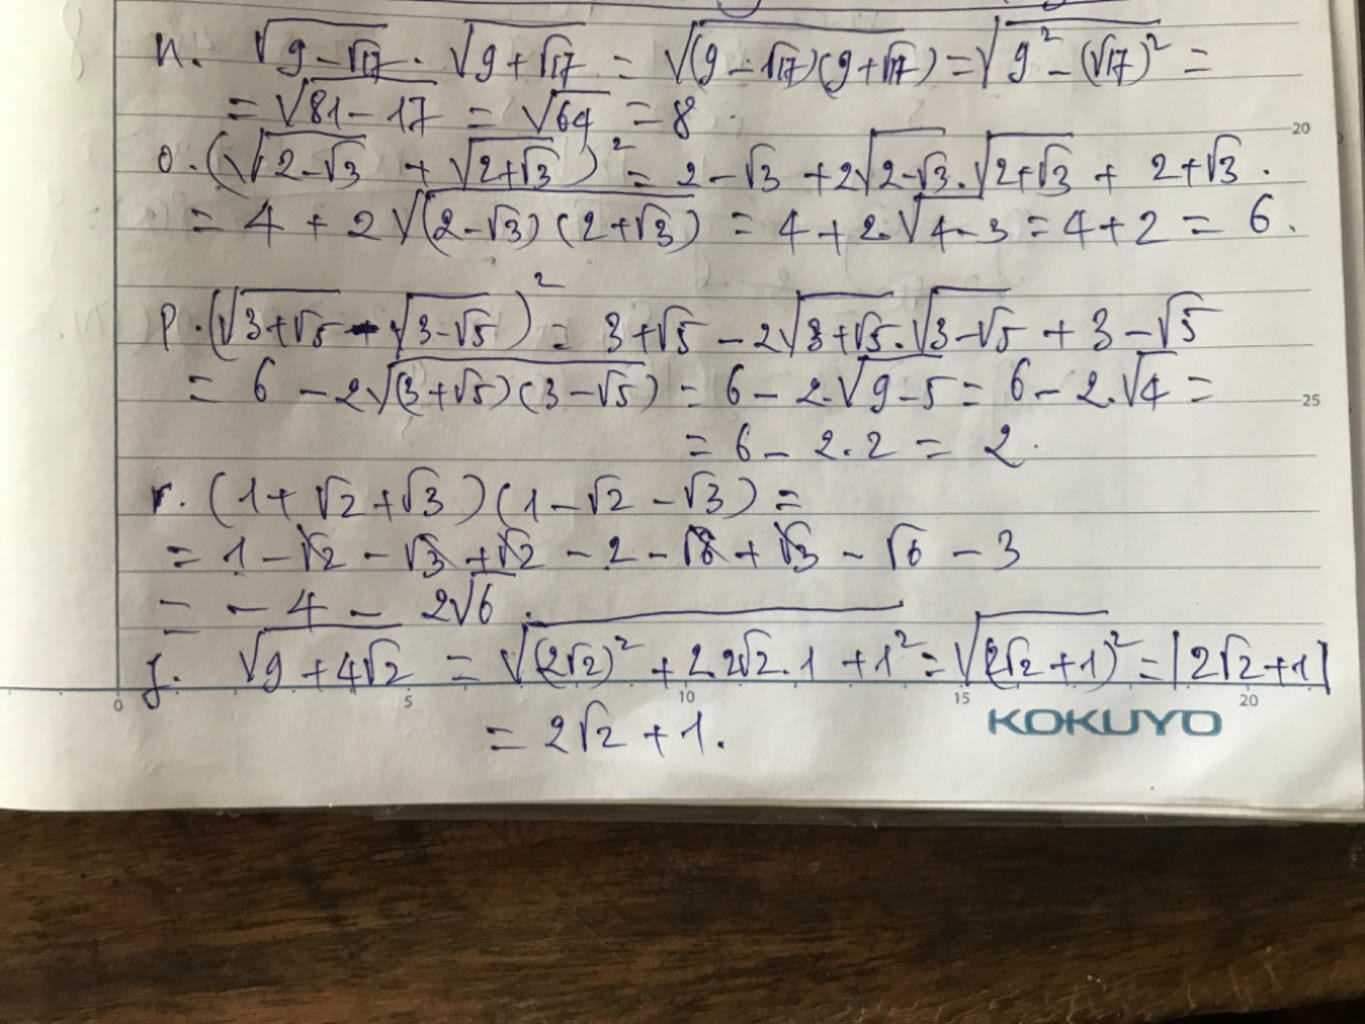 n. √(9-√17) . √(9+√17) = √((9-√17)(9+√17)) = √(9² - (√17)²) =
= √(81-17) = √64 = 8.
20
o. (√(2-√3) + √(2+√3))² = 2-√3 + 2√(2-√3).√(2+√3) + 2+√3.
= 4 + 2√((2-√3)(2+√3)) = 4+2.√(4-3) = 4+2 = 6.
p. (√(3+√5) - √(3-√5))² = 3+√5 - 2√(3+√5).√(3-√5) + 3-√5
= 6 - 2√((3+√5)(3-√5)) = 6 - 2.√(9-5) = 6 - 2.√4 =
25
= 6 - 2.2 = 2.
r. (1+√2+√3)(1-√2-√3) =
= 1-√2-√3+√2-2-√6+√3-√6-3
= -4-2√6.
j. √(9+4√2) = √((2√2)²+2.2√2.1+1²) = √((2√2+1)²) = |2√2+1|
0 5 10 15 20
KOKUYO
= 2√2+1.